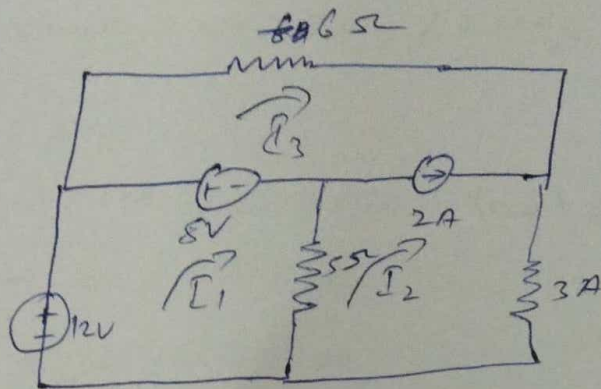 6 Ω
I3
+ -
8V
2A
I1
5Ω
I2
3A
12V